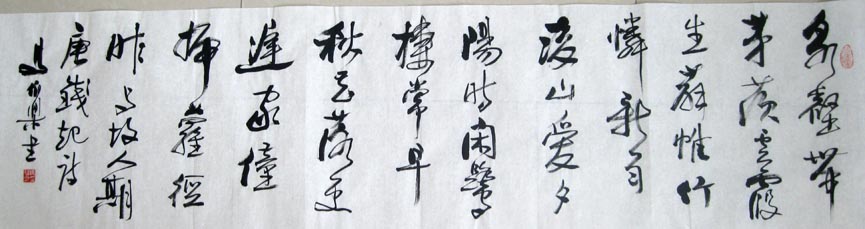 泉壑帶
茅茨雲霞
生薜帷竹
憐新雨
後山愛夕
陽时閑鷺
棲常早
秋花落更
遲家僮
掃蘿徑
昨与故人期
唐錢起詩